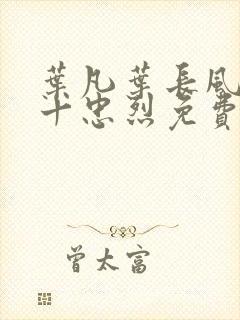 葉凡葉長風
十忠烈免費
曾太富